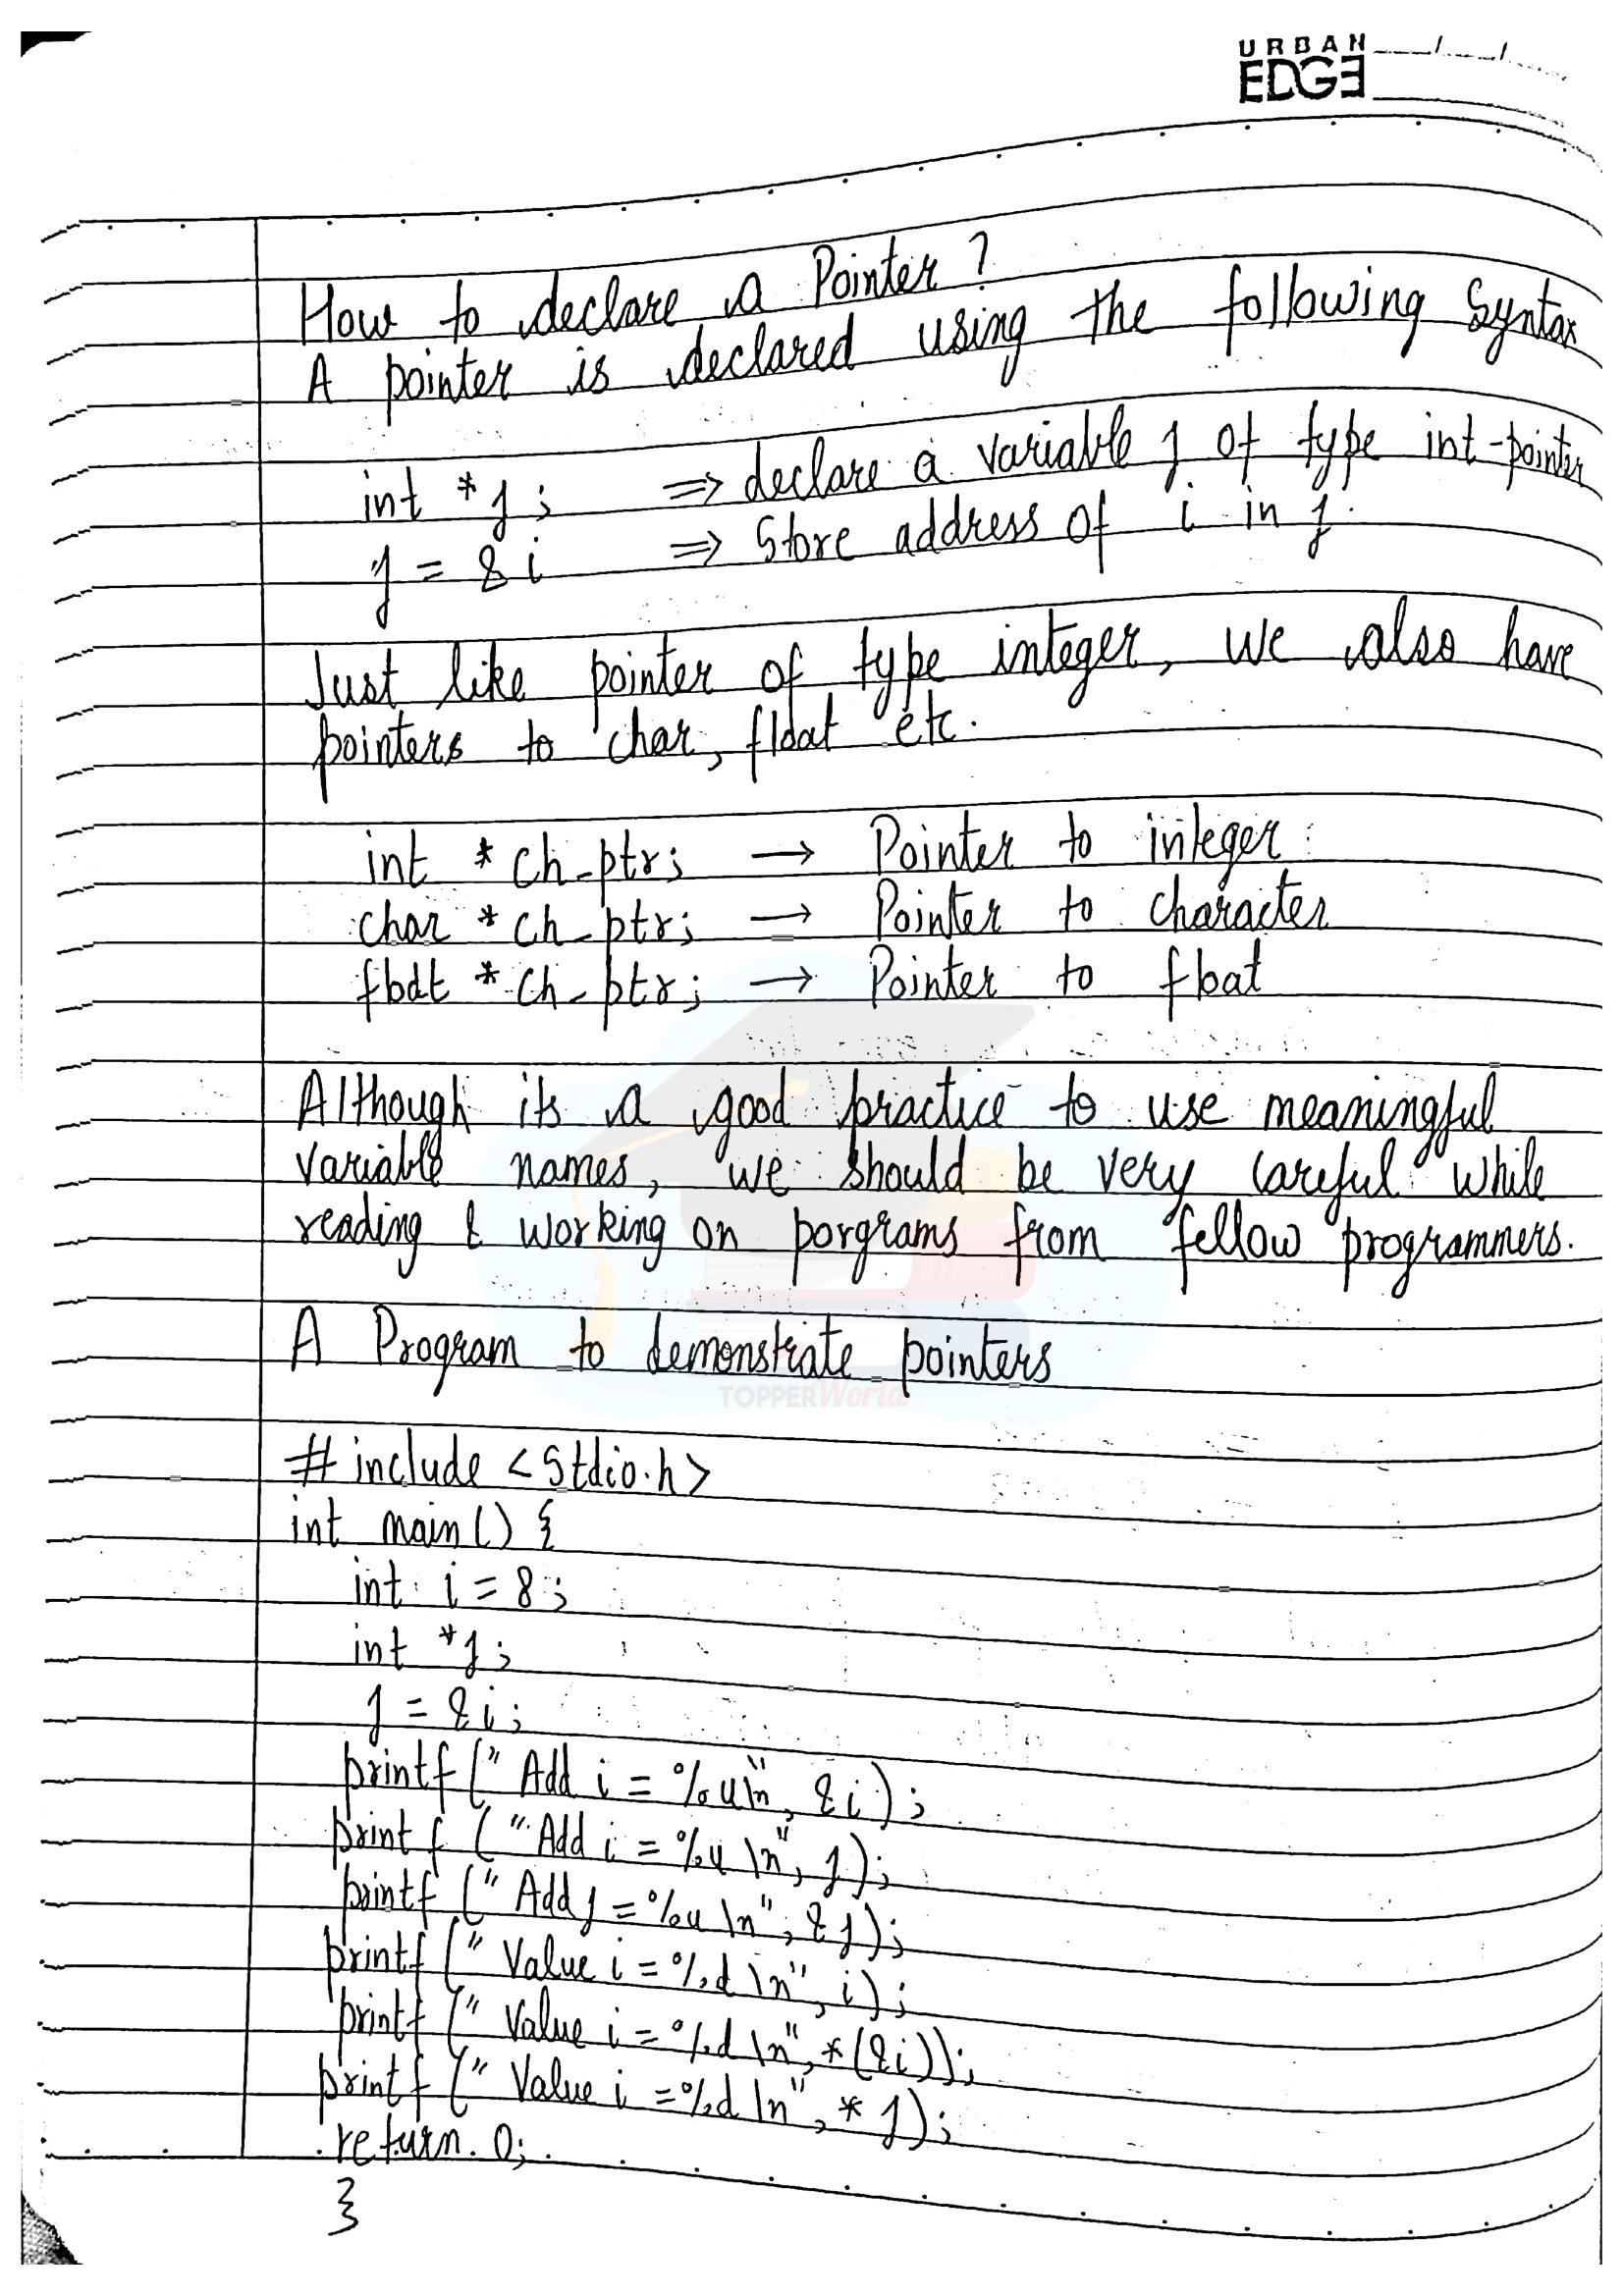 URBAN
EDGE
How to declare a Pointer ?
A pointer is declared using the following Syntax
int *j ; ⇒ declare a variable j of type int-pointer
j = & i ⇒ Store address of i in j.
Just like pointer of type integer, we also have
pointers to char, float etc.
int * ch_ptr; → Pointer to integer
char * ch_ptr; → Pointer to character
float * ch_ptr; → Pointer to float
Although its a good practice to use meaningful
variable names, we should be very careful while
reading & working on porgrams from fellow programmers.
A Program to demonstrate pointers
TOPPERWorld
# include <Stdio.h>
int main() {
int i = 8 ;
int *j ;
j = & i ;
printf (" Add i = %u\n", & i ) ;
print f ( " Add i = %u \n", j ) ;
printf (" Add j = %u \n", & j ) ;
printf (" Value i = %d \n", i ) ;
printf (" Value i = %d \n", *(&i)) ;
printf (" Value i = %d \n", * j ) ;
return 0;
}